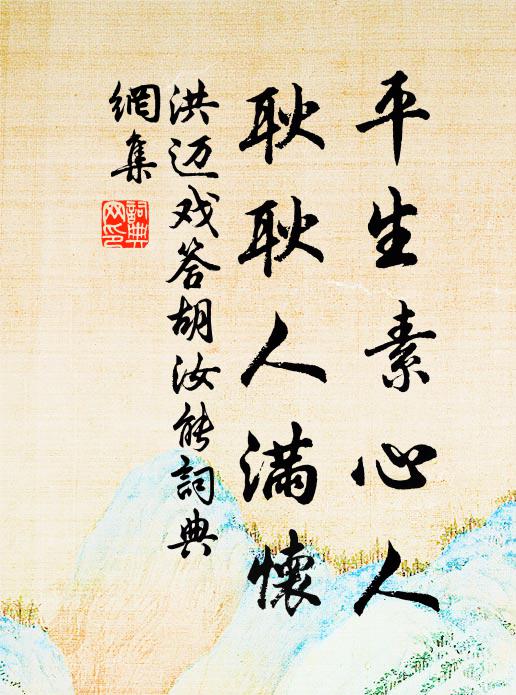 平生素心人
耿耿人满懷
洪迈戏答胡汝能詞典
網集
詞典
网印